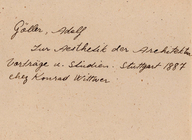 Göller, Adolf
Zur Aesthetik der Architektur
Vorträge u. Studien. Stuttgart 1887
chez Konrad Wittwer